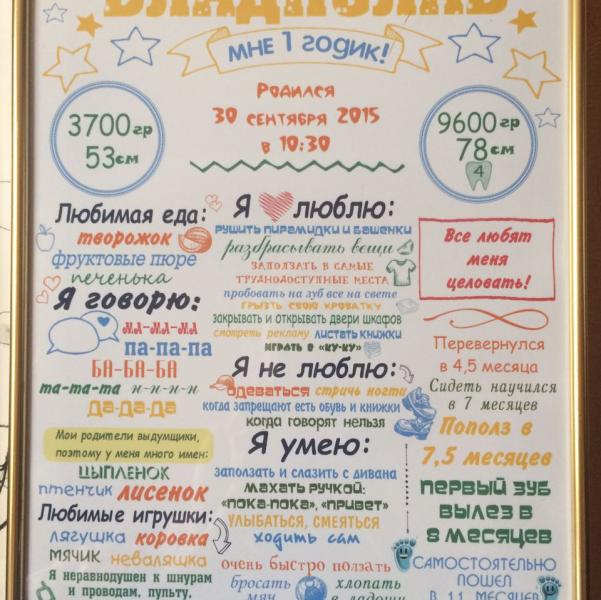 ВЛАДИСЛАВ
МНЕ 1 ГОДИК!
Родился
30 сентября 2015
в 10:30
3700гр
53см
9600гр
78см
4
Любимая еда:
творожок
фруктовые пюре
печенька
Я говорю:
МА-МА-МА
па-па-па
БА-БА-БА
та-та-та н-н-н-н
ДА-ДА-ДА
Мои родители выдумщики,
поэтому у меня много имен:
ЦЫПЛЕНОК
птенчик лисенок
Любимые игрушки:
лягушка коровка
мячик неваляшка
Я неравнодушен к шнурам
и проводам, пульту.
Я люблю:
рушить пирамидки и башенки
разбрасывать вещи
заползать в самые
труднодоступные места
пробовать на зуб все на свете
грызть свою кроватку
закрывать и открывать двери шкафов
смотреть рекламу листать книжки
играть в «ку-ку»
Я не люблю:
одеваться стричь ногти
когда запрещают есть обувь и книжки
когда говорят нельзя
Я умею:
заползать и слазить с дивана
махать ручкой:
"пока-пока", "привет"
улыбаться, смеяться
ходить сам
очень быстро ползать
бросать хлопать
мяч в ладоши
Все любят
меня
целовать!
Перевернулся
в 4,5 месяца
Сидеть научился
в 7 месяцев
Пополз в
7,5 месяцев
первый зуб
вылез в
8 месяцев
Самостоятельно
пошел
в 11 месяцев